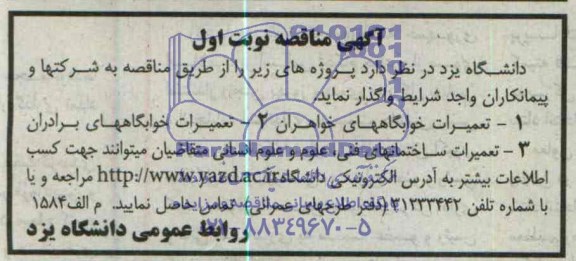 آگهی مناقصه نوبت اول
دانشگاه یزد در نظر دارد پروژه های زیر را از طریق مناقصه به شرکتها و
پیمانکاران واجد شرایط واگذار نماید.
۱ - تعمیرات خوابگاههای خواهران ۲ - تعمیرات خوابگاههای برادران
۳ - تعمیرات ساختمانهای فنی، علوم و علوم انسانی متقاضیان میتوانند جهت کسب
اطلاعات بیشتر به آدرس الکترونیکی دانشگاه http://www.yazd.ac.ir مراجعه و یا
با شماره تلفن ۳۱۲۳۳۴۴۲ (دفتر طرحهای عمرانی) تماس حاصل نمایید. م الف ۱۵۸۴
روابط عمومی دانشگاه یزد
۸۸۳۴۹۶۷۰-۵